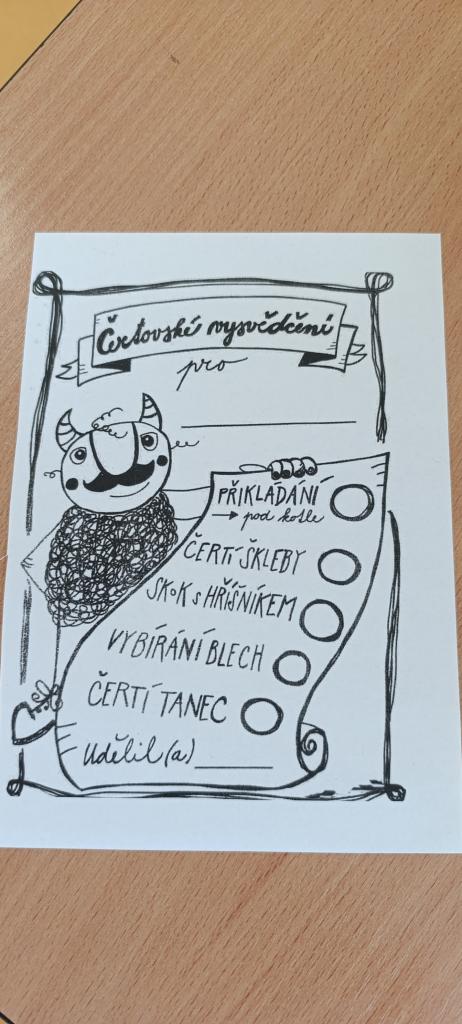 Čertovské vysvědčení
pro
PŘIKLÁDÁNÍ
→ pod kotle
ČERTÍ ŠKLEBY
SKOK S HŘÍŠNÍKEM
VYBÍRÁNÍ BLECH
ČERTÍ TANEC
Udělil(a)